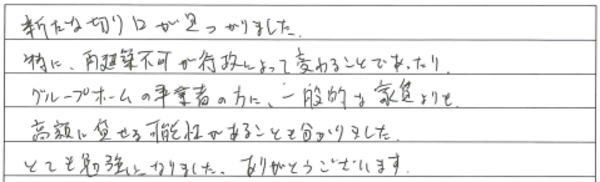 新たな切り口が見つかりました。
特に、再建築不可が行政によって変わることであったり、
グループホームの事業者の方に、一般的な家賃よりも
高額に貸せる可能性があることも分かりました。
とても勉強になりました。ありがとうございます。